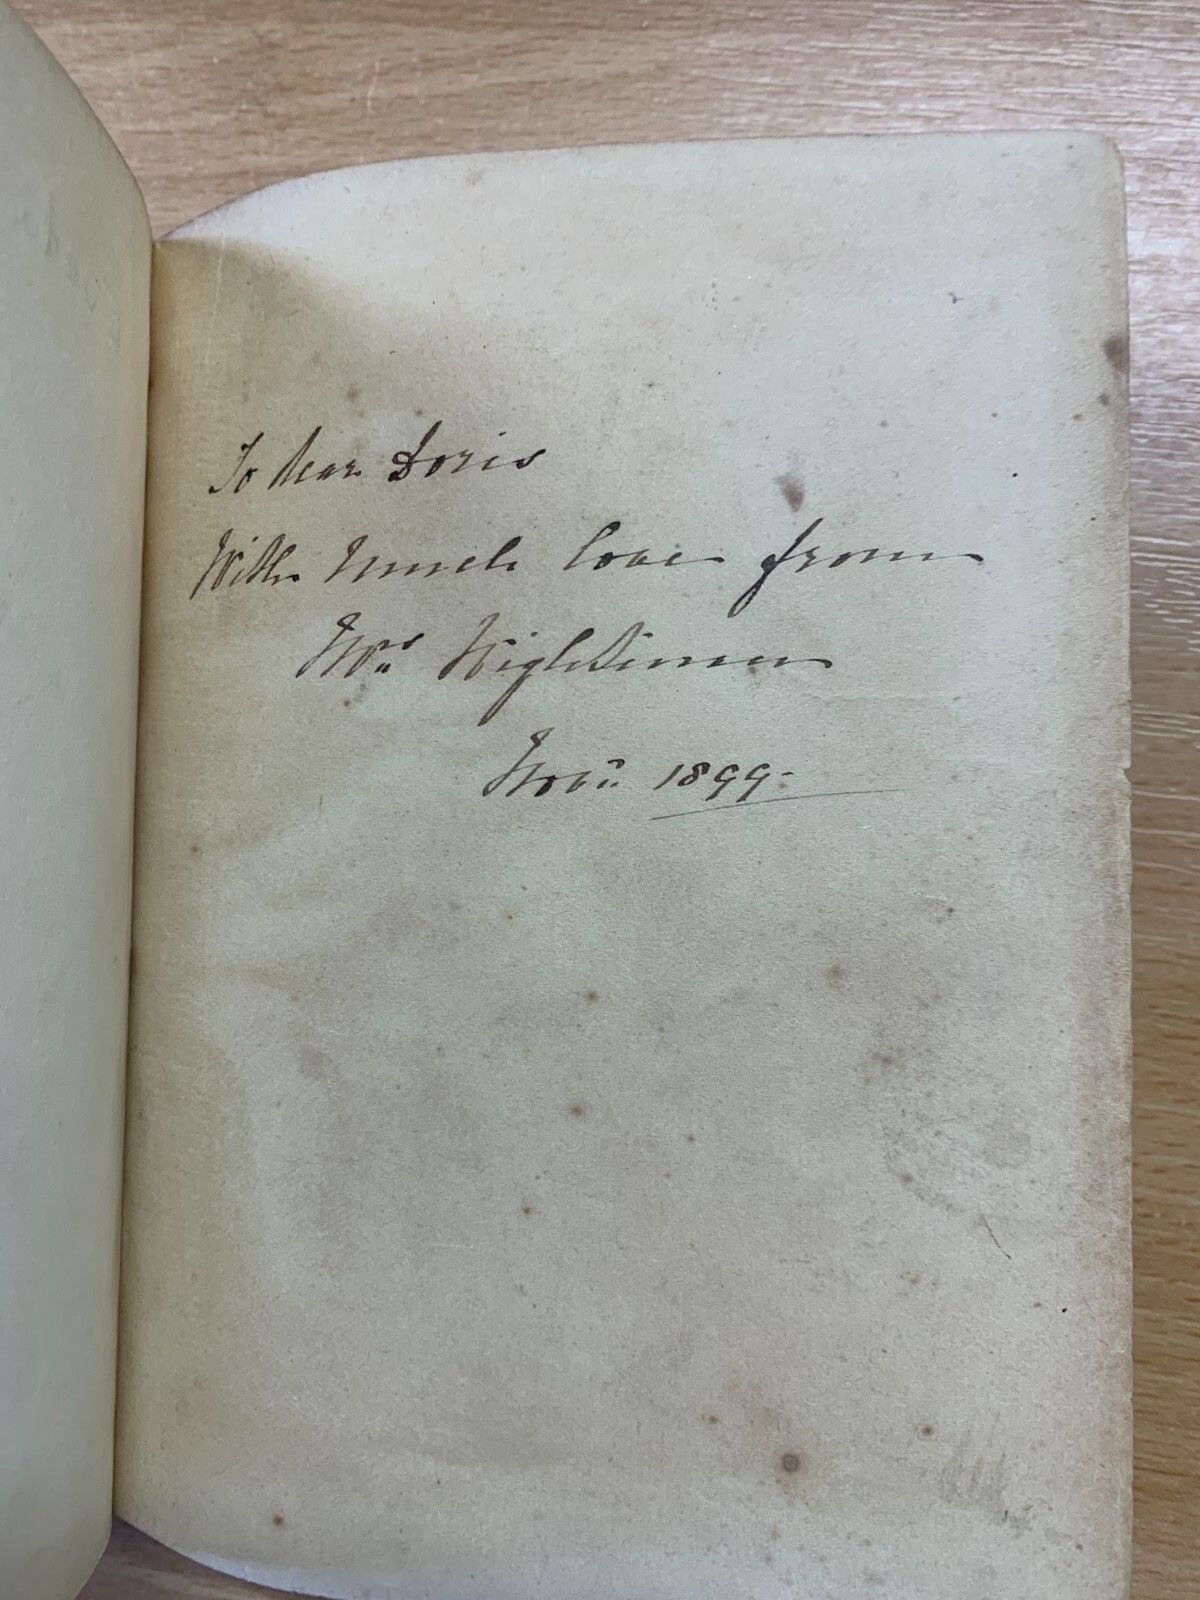 To dear Doris
With much love from
Mrs
Novr 1899-